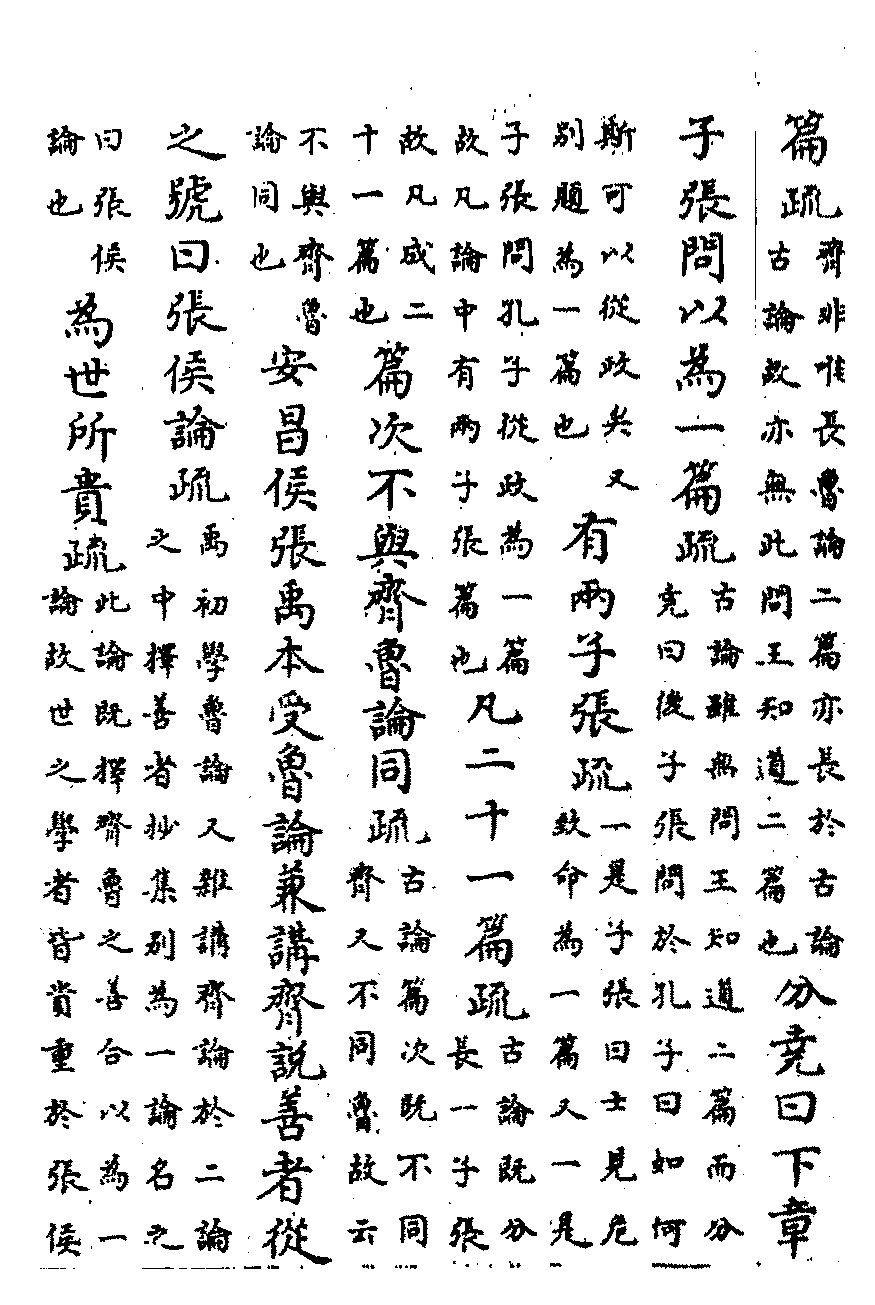 篇疏齊非唯長魯論二篇亦長於古論古論故亦無此問王知道二篇也分堯曰下章
子張問以為一篇疏古論雖無問王知道二篇而分堯曰後子張問於孔子曰如何
斯可以從政矣又別題為一篇也有兩子張疏一是子張曰士見危致命為一篇又一是
子張問孔子從政為一篇故凡論中有兩子張篇也凡二十一篇疏古論既分長一子張
故凡成二十一篇也篇次不與齊魯論同疏古論篇次既不同齊又不同魯故云
不與齊魯論同也安昌侯張禹本受魯論兼講齊說善者從
之號曰張侯論疏禹初學魯論又雜講齊論於二論之中擇善者抄集別為一論名之
曰張侯論也為世所貴疏此論既擇齊魯之善合以為一論故世之學者皆貴重於張侯